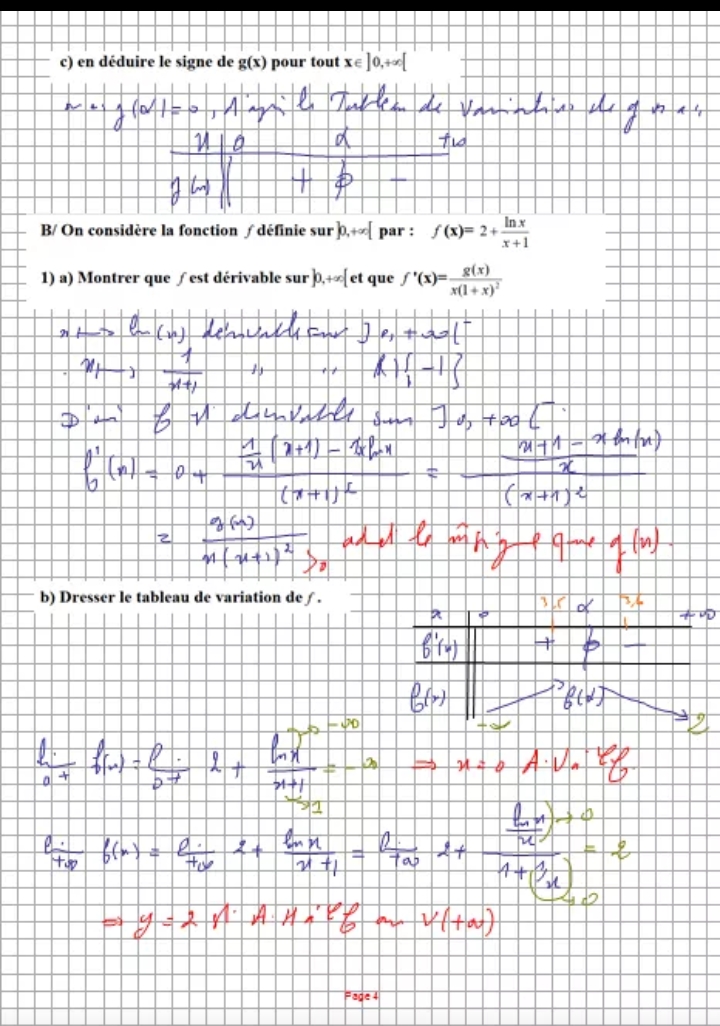 c) en déduire le signe de g(x) pour tout x∈ ]0,+∞[
g(α)=0, d'après le Tableau de variations de g on a :
x 0 α +∞
g(x) + 0 −
B/ On considère la fonction f définie sur ]0,+∞[ par : f(x)= 2 + ln x / (x+1)
1) a) Montrer que f est dérivable sur ]0,+∞[ et que f '(x)= g(x) / x(1+x)²
x ↦ ln(x) dérivable sur ]0, +∞[
x ↦ 1/(x+1) " " ℝ\{-1}
D'où f est dérivable sur ]0, +∞[
f'(x) = 0 + (1/x (x+1) − 1×ln x) / (x+1)² = ((x+1 − x ln(x)) / x) / (x+1)²
= g(x) / x(x+1)² >0 le signe que g(x).
b) Dresser le tableau de variation de f .
x 0 3,5 α 3,6 +∞
f'(x) + 0 −
f(x) -∞ f(α) 2
lim 0+ f(x) = lim 0+ 2 + ln x →-∞ / x+1 →1 = -∞ ⇒ x=0 A.V à Cf
lim +∞ f(x) = lim +∞ 2 + ln x / x+1 = lim +∞ 2 + (ln x / x) →0 / 1 + 1/x →0 = 2
⇒ y = 2 est A.H à Cf au V(+∞)
Page 4